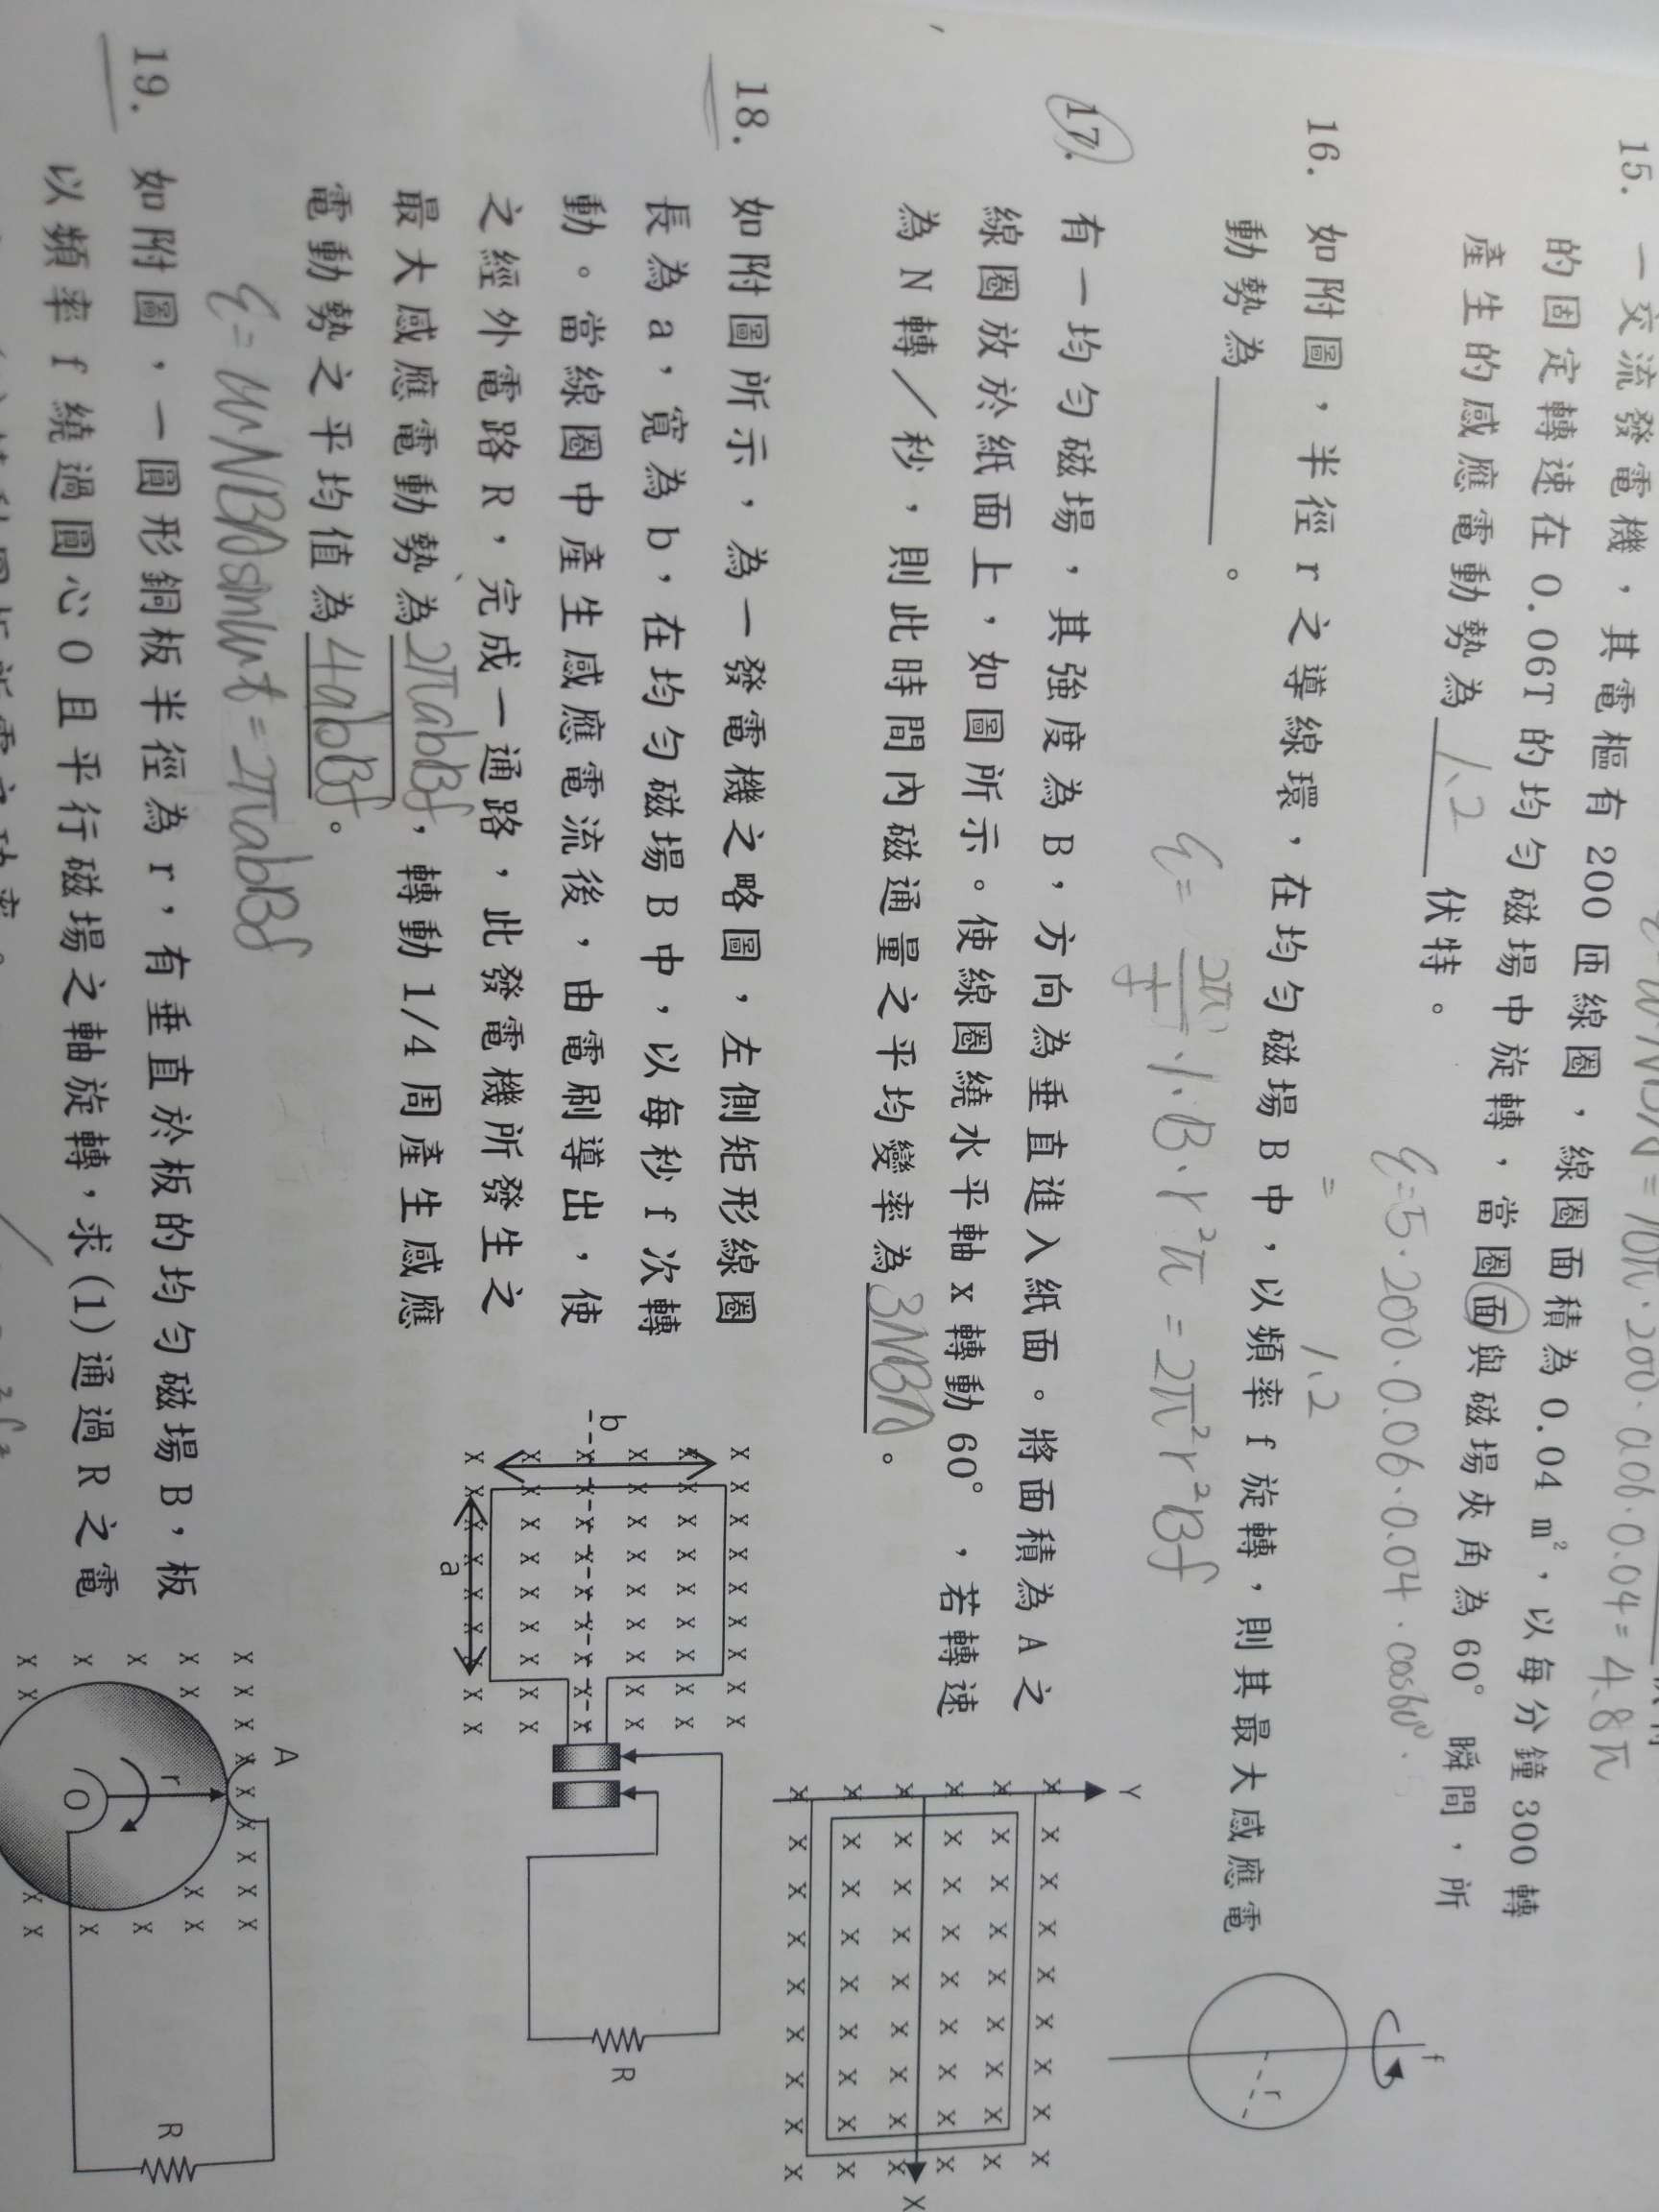 15. 一交流發電機，其電樞有 200 匝線圈，線圈面積為 0.04 m²，以每分鐘 300 轉
的固定轉速在 0.06T 的均勻磁場中旋轉，當圈面與磁場夾角為 60° 瞬間，所
產生的感應電動勢為 1.2 伏特。
= 10π·200·0.06·0.04 = 4.8π
ε=5·200·0.06·0.04·cos60°
= 1.2
16. 如附圖，半徑 r 之導線環，在均勻磁場 B 中，以頻率 f 旋轉，則其最大感應電
動勢為＿＿＿＿。
f
r
ε= 2π/(1/f) ·1·B·r²π = 2π²r²Bf
17. 有一均勻磁場，其強度為 B，方向為垂直進入紙面。將面積為 A 之
線圈放於紙面上，如圖所示。使線圈繞水平軸 x 轉動 60°，若轉速
為 N 轉／秒，則此時間內磁通量之平均變率為 3NBA。
Y
X
18. 如附圖所示，為一發電機之略圖，左側矩形線圈
長為 a，寬為 b，在均勻磁場 B 中，以每秒 f 次轉
動。當線圈中產生感應電流後，由電刷導出，使
之經外電路 R，完成一通路，此發電機所發生之
最大感應電動勢為 2πabBf，轉動 1/4 周產生感應
電動勢之平均值為 4abBf。
b
a
R
ε=wNBAsinwt=2πabBf
19. 如附圖，一圓形銅板半徑為 r，有垂直於板的均勻磁場 B，板
以頻率 f 繞過圓心 O 且平行磁場之軸旋轉，求(1)通過 R 之電
A
r
O
R